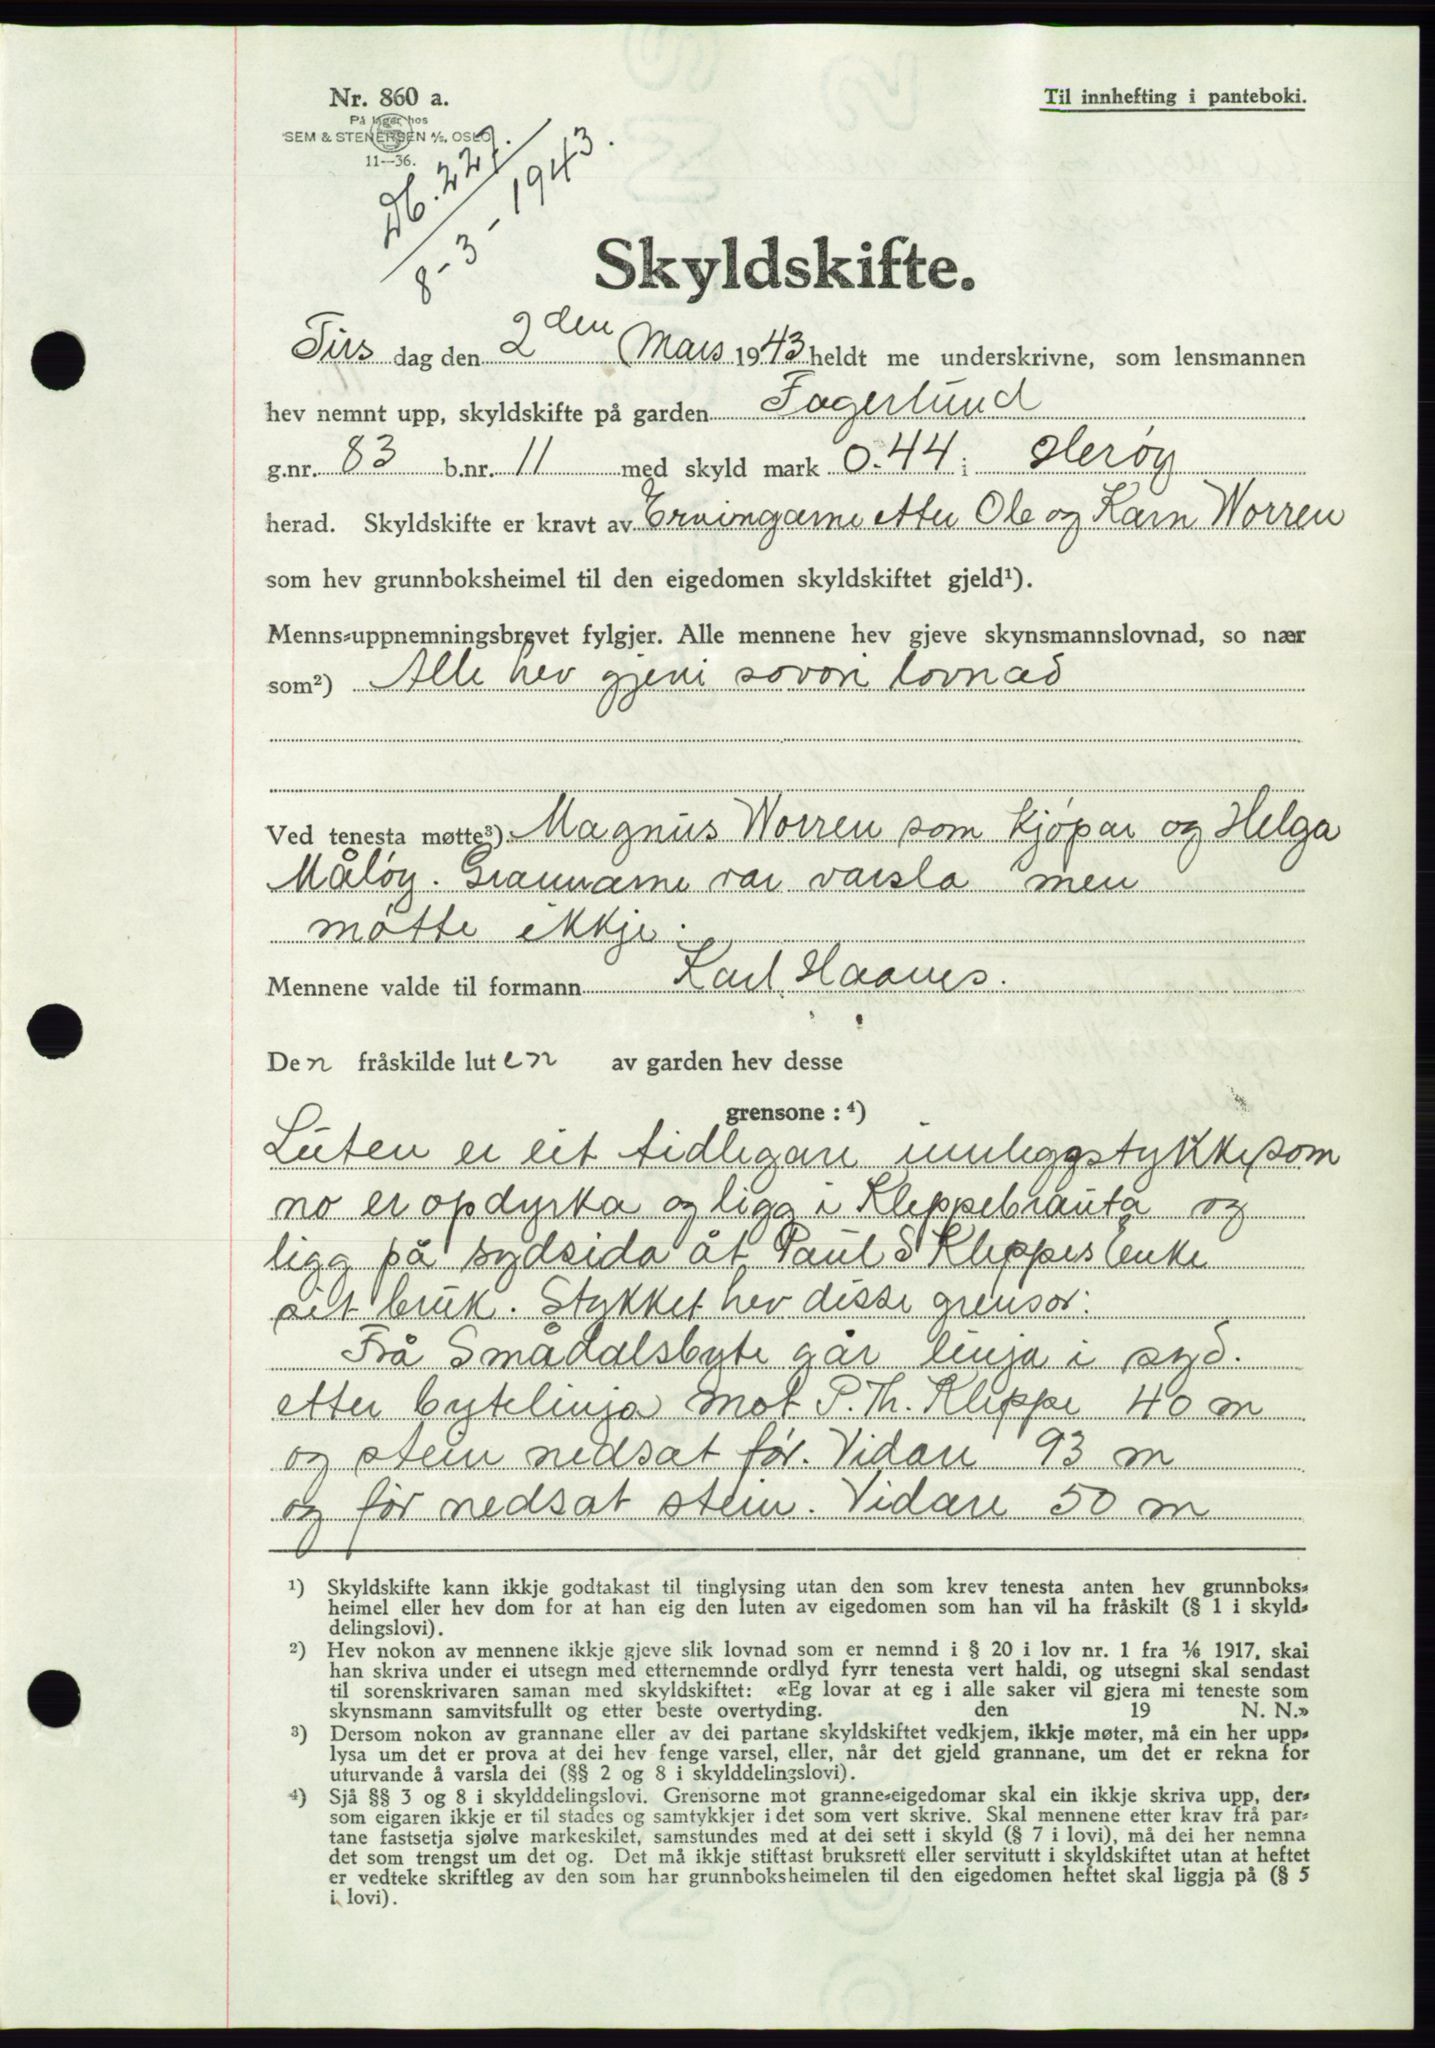 Nr. 860 a.
Til innhefting i panteboki.
På lager hos
SEM & STENERSEN A/S, OSLO
11—36.
Db. 227.
8-3-1943.
Skyldskifte.
Tirs dag den 2den Mars 1943 heldt me underskrivne, som lensmannen
hev nemnt upp, skyldskifte på garden Fagerlund
g.nr. 83 b.nr. 11 med skyld mark 0.44 i Herøy
herad. Skyldskifte er kravt av Ervingarne etter Ole og Karn Worren
som hev grunnboksheimel til den eigedomen skyldskiftet gjeld¹).
Menns-uppnemningsbrevet fylgjer. Alle mennene hev gjeve skynsmannslovnad, so nær
som²) Alle hev gjevi sovori lovnad
Ved tenesta møtte³) Magnus Worren som kjøpar og Helga
Måløy. Grannarne var varsla men
møtte ikkje.
Mennene valde til formann Karl Haanes.
Den fråskilde luten av garden hev desse
grensone : ⁴)
Luten er eit tidlegare innleggstykke, som
no er opdyrka og ligg i Kleppebrauta og
ligg på sydsida åt Paul S Kleppes Enke
sit bruk. Stykket hev disse grensor:
Frå Smådalsbyte går linja i syd.
etter bytelinja mot P. Th. Kleppe 40 m
og stein nedsat før. Vidare 93 m
og før nedsat stein. Vidare 50 m
¹) Skyldskifte kann ikkje godtakast til tinglysing utan den som krev tenesta anten hev grunnboks-
heimel eller hev dom for at han eig den luten av eigedomen som han vil ha fråskilt (§ 1 i skyld-
delingslovi).
²) Hev nokon av mennene ikkje gjeve slik lovnad som er nemnd i § 20 i lov nr. 1 fra 1/6 1917, skal
han skriva under ei utsegn med etternemnde ordlyd fyrr tenesta vert haldi, og utsegni skal sendast
til sorenskrivaren saman med skyldskiftet: «Eg lovar at eg i alle saker vil gjera mi teneste som
skynsmann samvitsfullt og etter beste overtyding. den 19 N. N.»
³) Dersom nokon av grannane eller av dei partane skyldskiftet vedkjem, ikkje møter, må ein her upp-
lysa um det er prova at dei hev fenge varsel, eller, når det gjeld grannane, um det er rekna for
uturvande å varsla dei (§§ 2 og 8 i skylddelingslovi).
⁴) Sjå §§ 3 og 8 i skylddelingslovi. Grensorne mot granne-eigedomar skal ein ikkje skriva upp, der-
som eigaren ikkje er til stades og samtykkjer i det som vert skrive. Skal mennene etter krav frå par-
tane fastsetja sjølve markeskilet, samstundes med at dei sett i skyld (§ 7 i lovi), må dei her nemna
det som trengst um det og. Det må ikkje stiftast bruksrett eller servitutt i skyldskiftet utan at heftet
er vedteke skriftleg av den som har grunnboksheimelen til den eigedomen heftet skal liggja på (§ 5
i lovi).